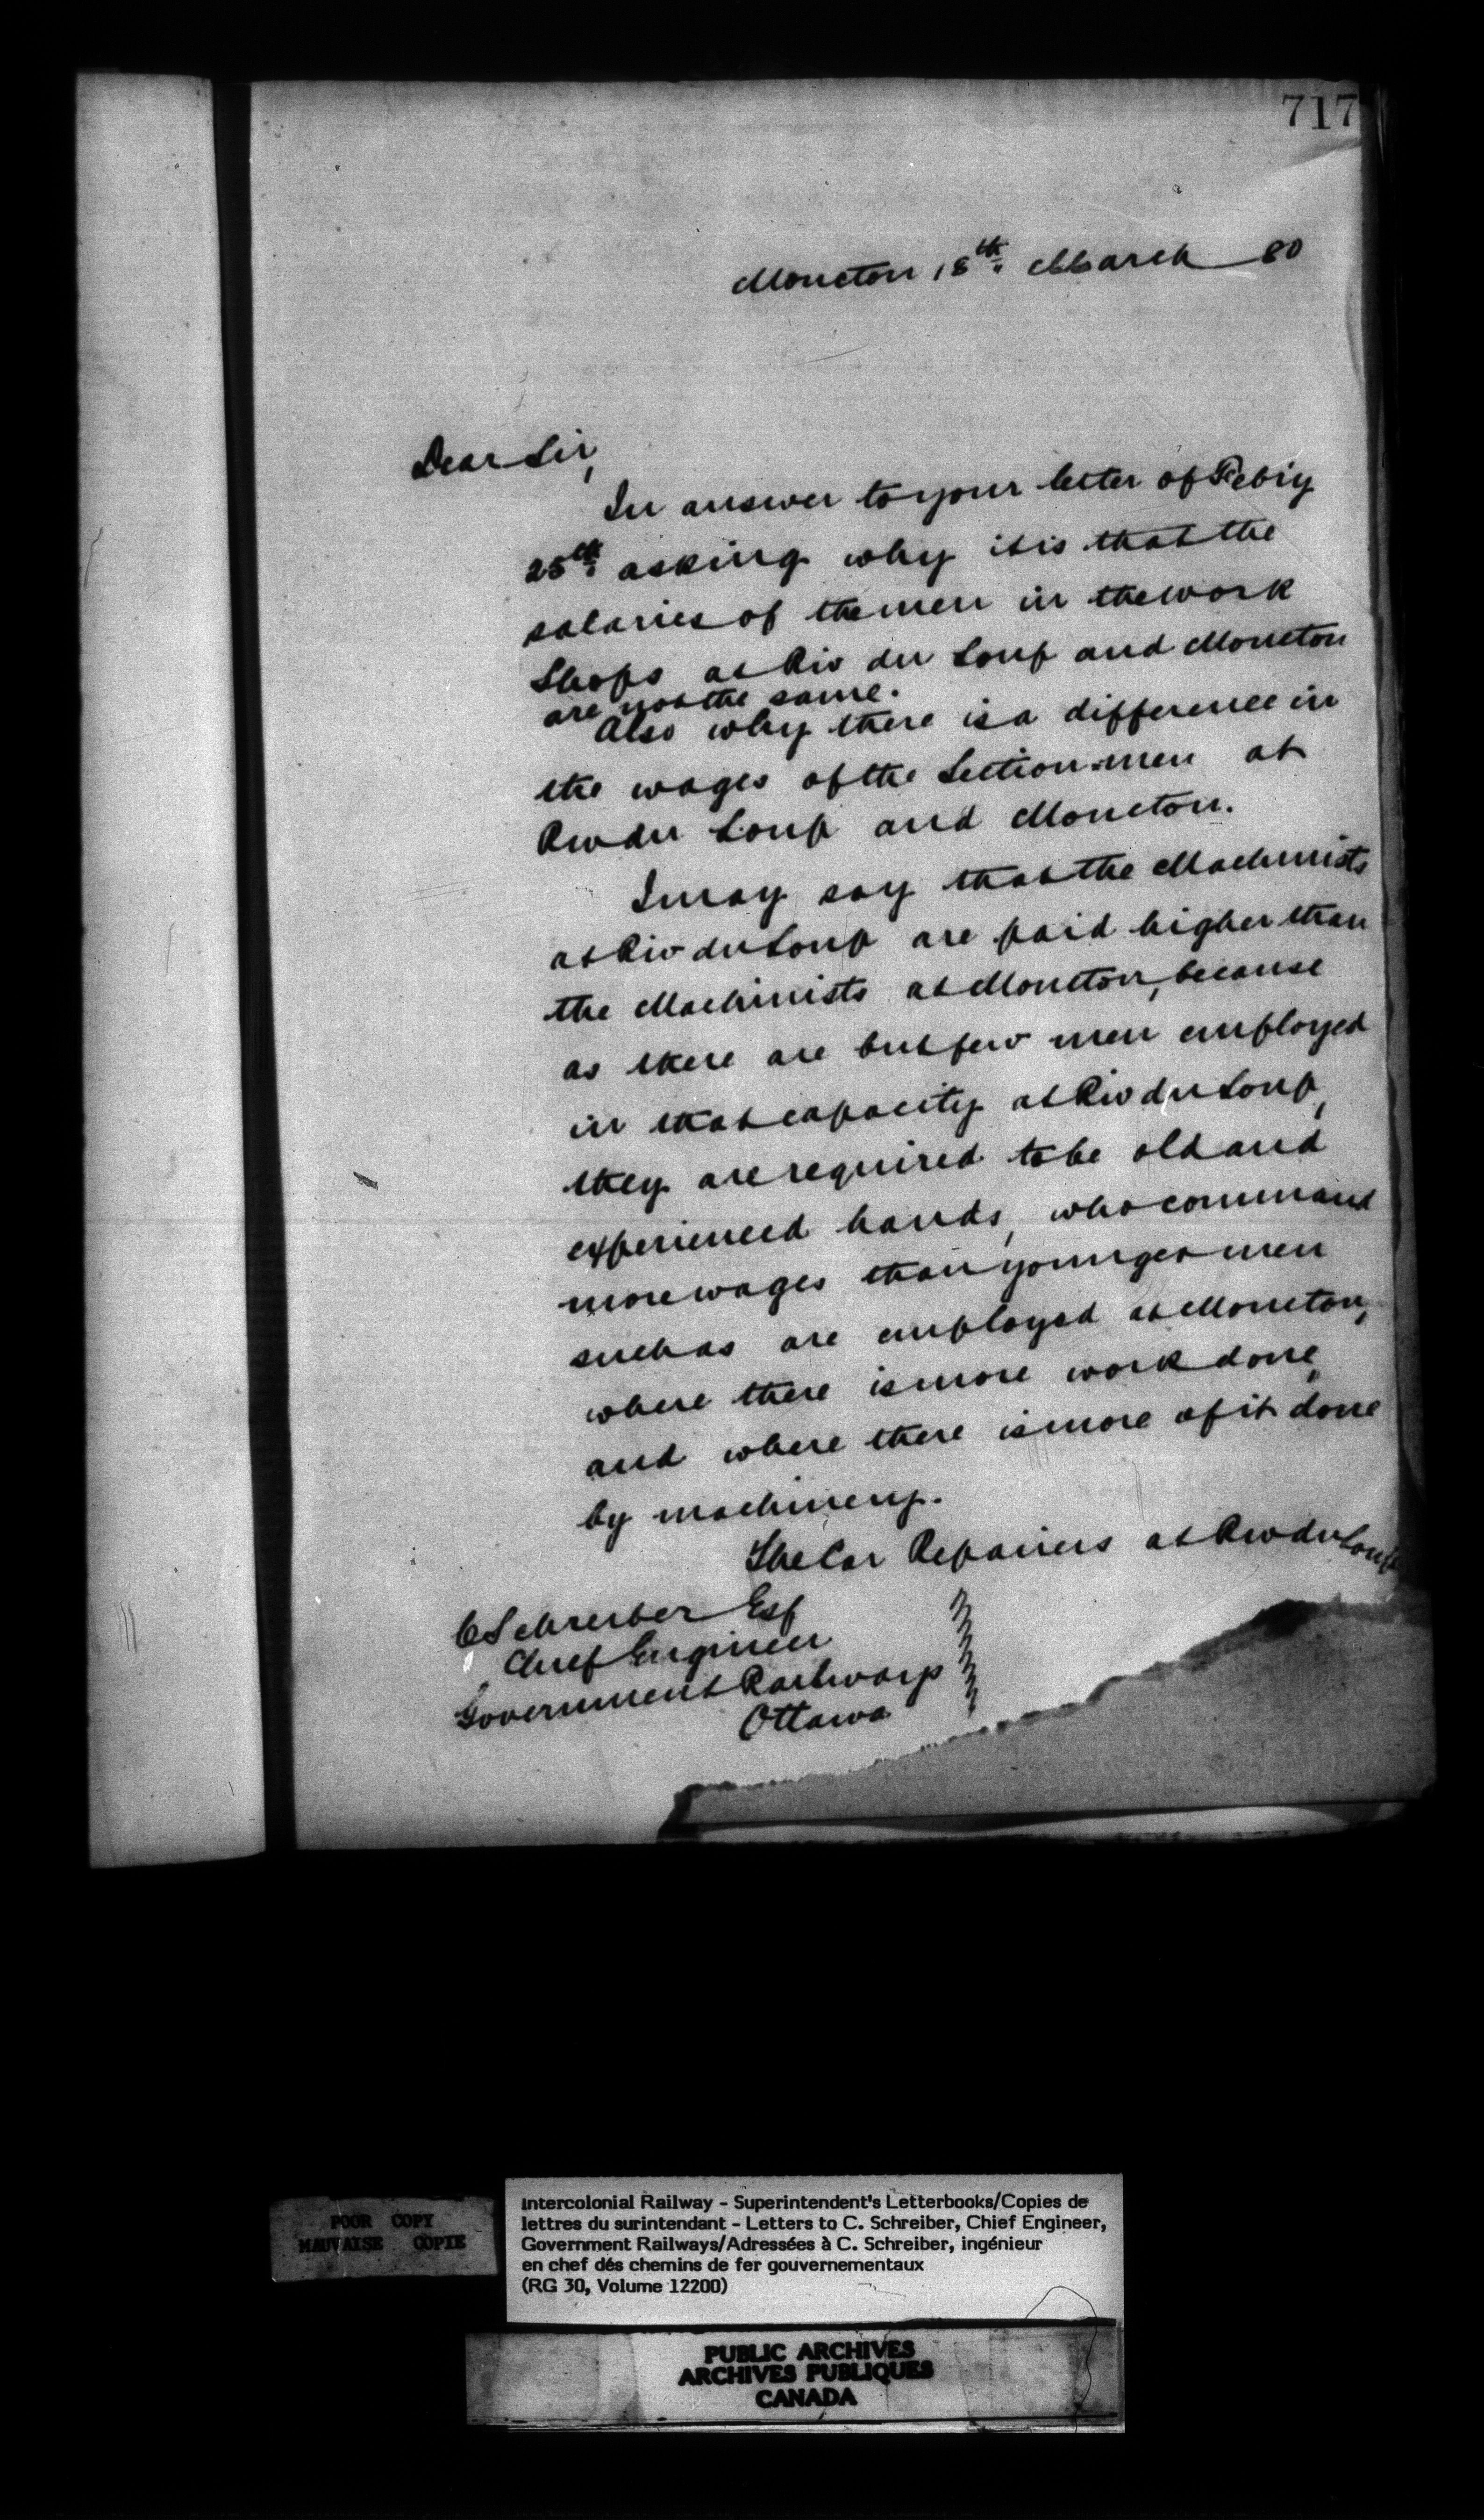 717
Moncton 18th. March 80
Dear Sir,
In answer to your letter of Feb'y
25th. asking why it is that the
salaries of the men in the work
Shops at Riv du Loup and Moncton
are not the same.
Also why there is a difference in
the wages of the Section-men at
Riv du Loup and Moncton.
I may say that the Machinists
at Riv du Loup are paid higher than
the Machinists at Moncton, because
as there are but few men employed
in that capacity at Riv du Loup,
they are required to be old and
experienced hands, who command
more wages than younger men
such as are employed at Moncton,
where there is more work done,
and where there is more of it done
by machinery.
The Car Repairers at Riv du Loup
C Schreiber Esq
Chief Engineer
Government Railways
Ottawa
POOR COPY
MAUVAISE COPIE
Intercolonial Railway - Superintendent's Letterbooks/Copies de
lettres du surintendant - Letters to C. Schreiber, Chief Engineer,
Government Railways/Adressées à C. Schreiber, ingénieur
en chef dés chemins de fer gouvernementaux
(RG 30, Volume 12200)
PUBLIC ARCHIVES
ARCHIVES PUBLIQUES
CANADA